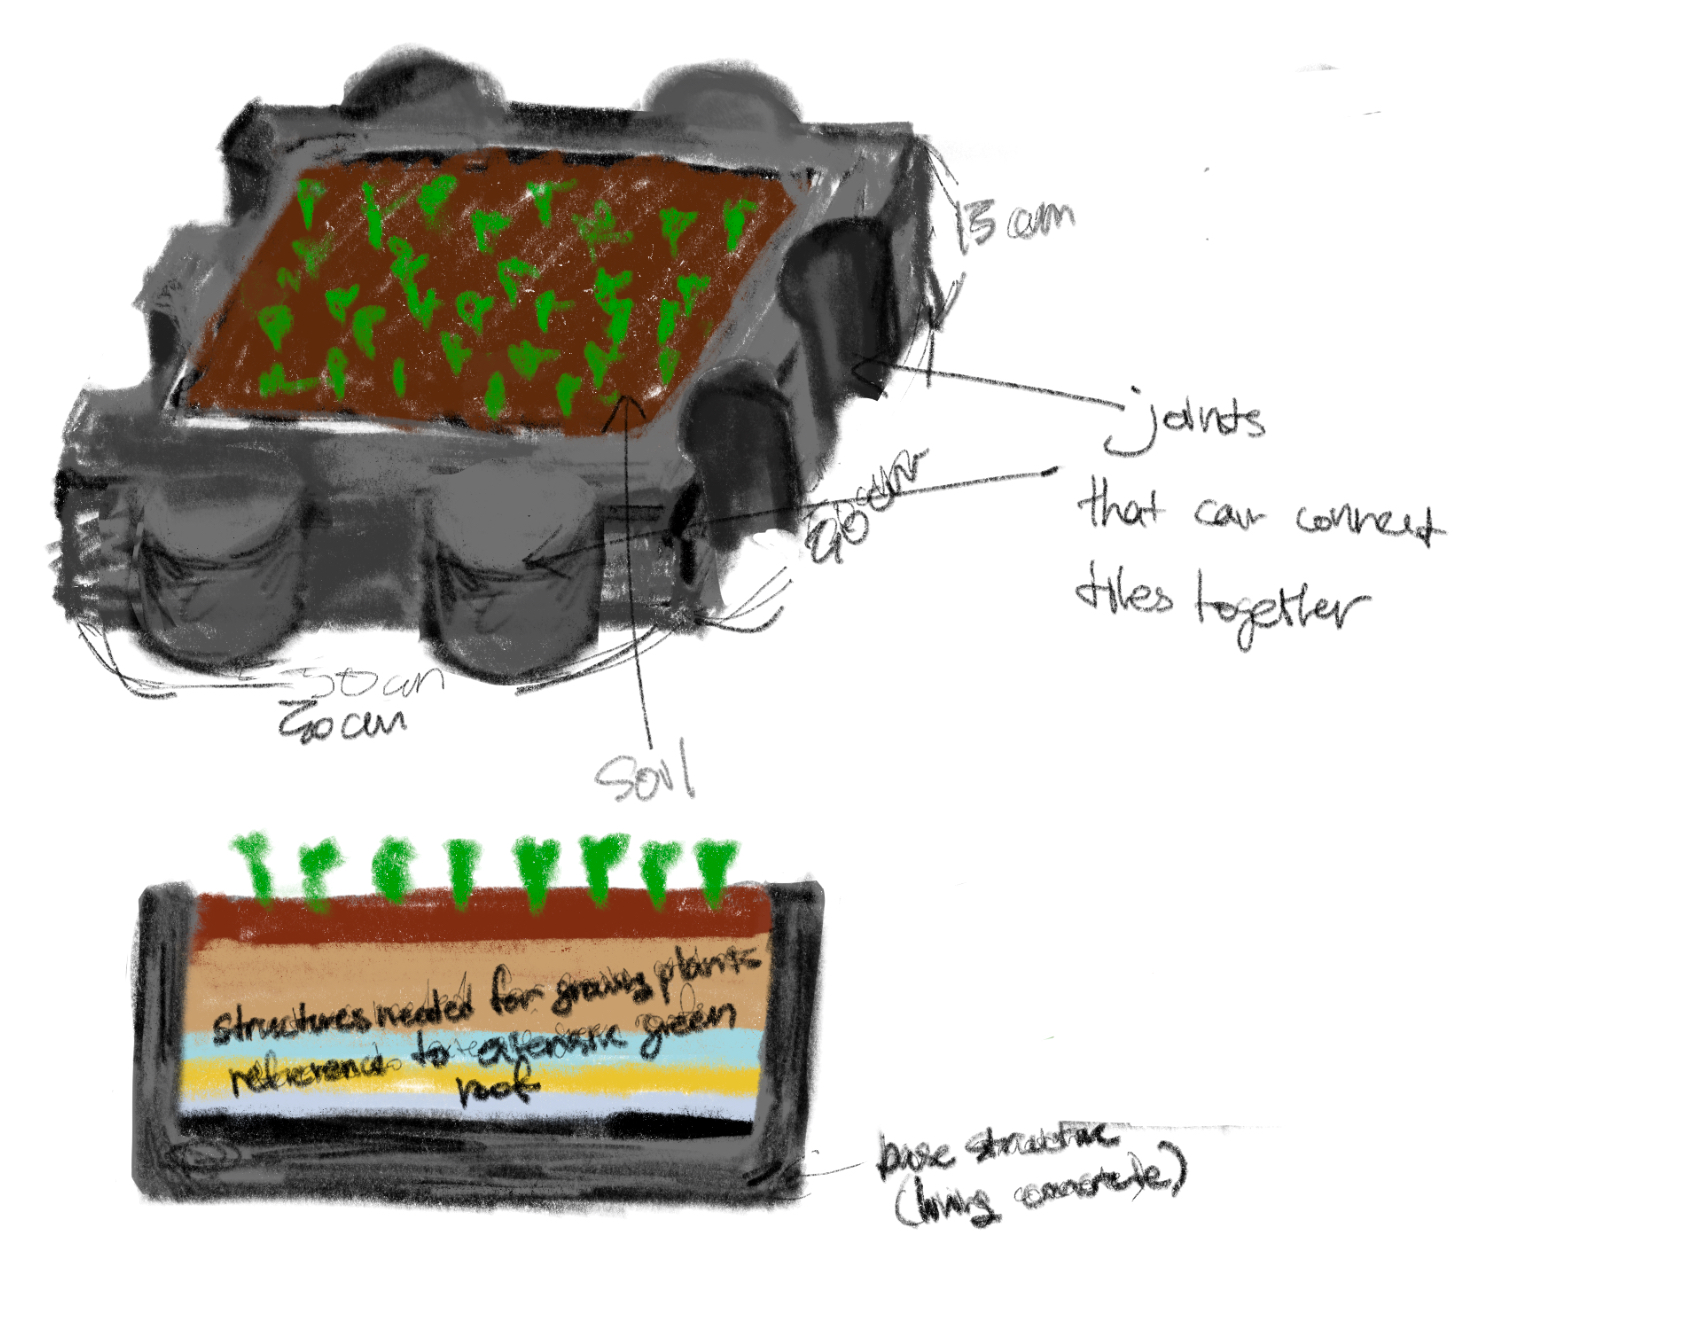 15 cm
joints
that can connect
tiles together
30 cm
30 cm
30 cm
soil
structures needed for growing plants
reference to extensive green
roof
base structure
(living concrete)